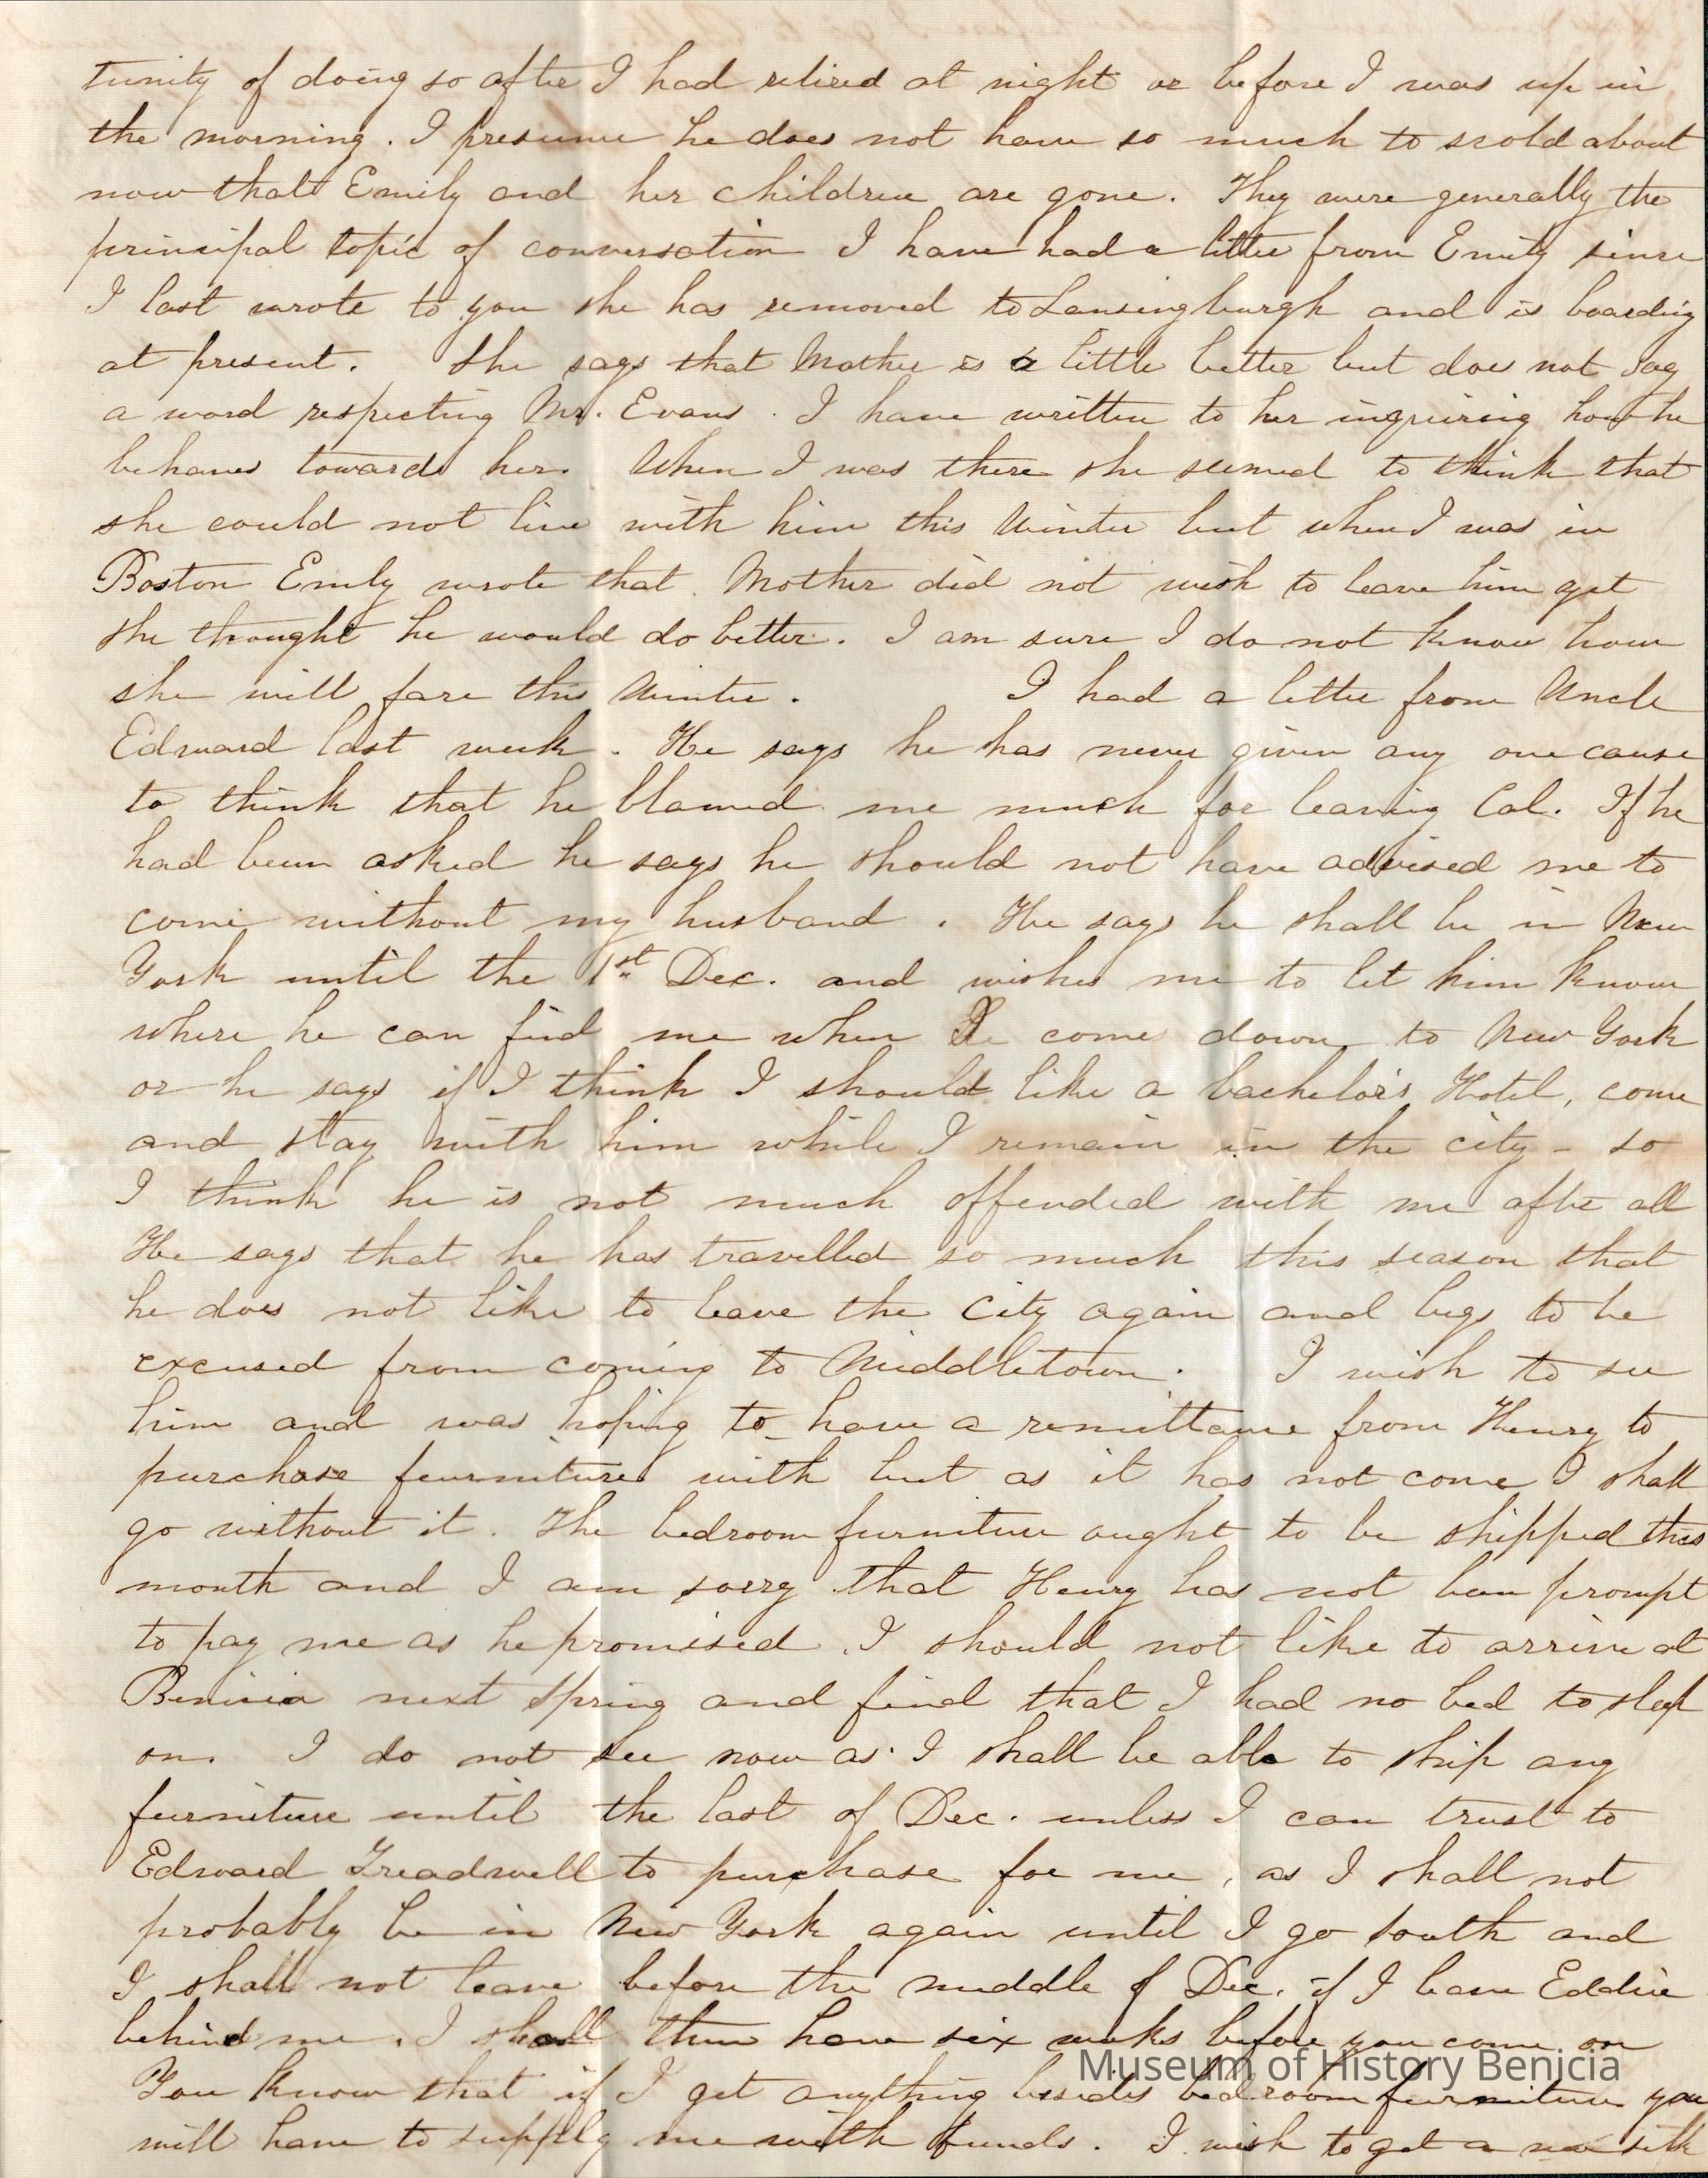 tunity of doing so after I had retired at night or before I was up in
the morning. I presume he does not have so much to scold about
now that Emily and her children are gone. They were generally the
principal topic of conversation I have had a letter from Emily since
I last wrote to you she has removed to Lansingburgh and is boarding
at present. She says that Mother is a little better but does not say
a word respecting Mr. Evans. I have written to her inquiring how he
behaves towards her. When I was there she seemed to think that
she could not live with him this Winter but when I was in
Boston Emily wrote that Mother did not wish to leave him yet
she thought he would do better. I am sure I do not know how
she will fare this Winter. I had a letter from Uncle
Edward last week. He says he has never given any one cause
to think that he blamed me much for leaving Cal. If he
had been asked he says he should not have advised me to
come without my husband. He says he shall be in New
York until the 1st Dec. and wishes me to let him know
where he can find me when I come down to New York
or he says if I think I should like a bachelor's Hotel, come
and stay with him while I remain in the city - so
I think he is not much offended with me after all
He says that he has travelled so much this season that
he does not like to leave the City again and begs to be
excused from coming to Middletown. I wish to see
him and was hoping to have a remittance from Henry to
purchase furniture with but as it has not come I shall
go without it. The bedroom furniture ought to be shipped this
month and I am sorry that Henry has not been prompt
to pay me as he promised. I should not like to arrive at
Benicia next Spring and find that I had no bed to sleep
on. I do not see now as I shall be able to ship any
furniture until the last of Dec. unless I can trust to
Edward Treadwell to purchase for me, as I shall not
probably be in New York again until I go South and
I shall not leave before the middle of Dec. if I leave Eddie
behind me. I shall then have six weeks before you come on
You know that if I get anything besides bedroom furniture you
will have to supply me with funds. I wish to get a new silk
Museum of History Benicia